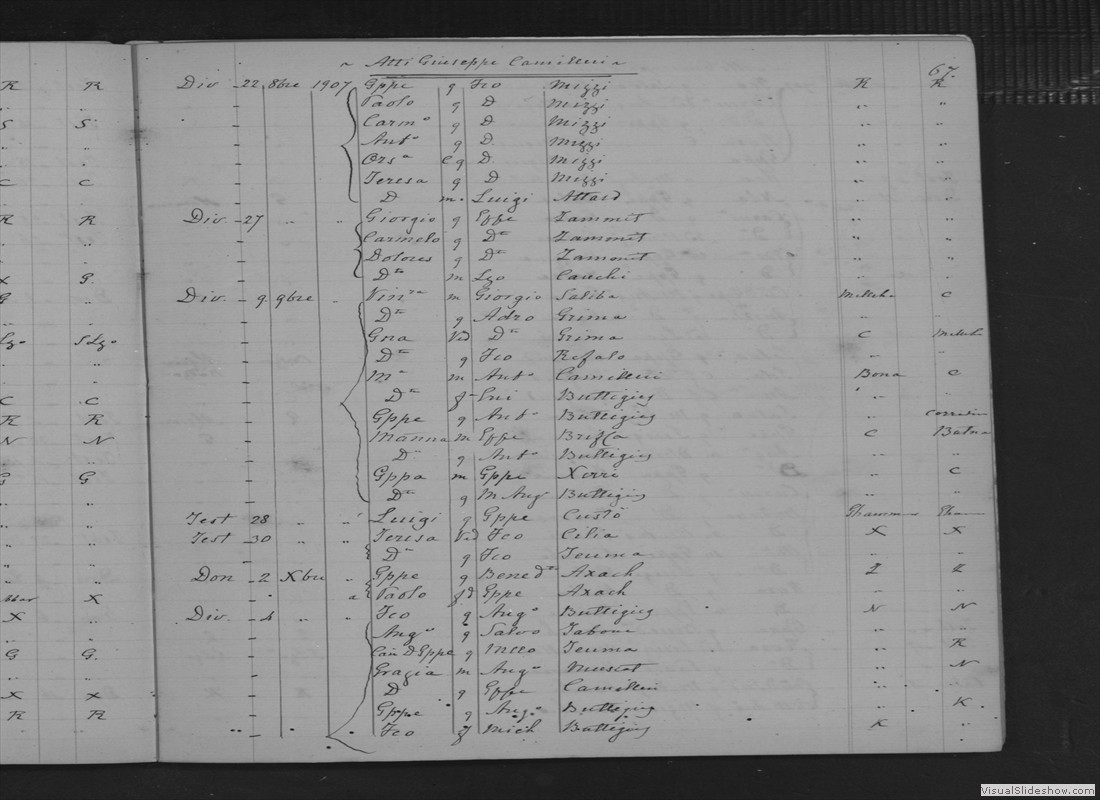 Atti Giuseppe Camilleri
67.
R R Div - 22 8bre 1907 Gppe g Fco Mizzi R R
" " - Paolo g D Mizzi " "
S S - Carmo g D Mizzi " "
" " - Anto g D. Mizzi " "
" " - Orsa C g D. Mizzi " "
C C - Teresa g D Mizzi " "
- D m. Luigi Attard " "
R R Div. - 27 " " Giorgio g Gppe Zammit " "
" - Carmelo g Do Zammit " "
" - Dolores g Do Zammit " "
X G. - Da m Lzo Cauchi " "
G " Div. - 9 9bre " Vinza m Giorgio Saliba C
- Da g Adro Grima " "
Lzo SLzo - Gna Ved Do Grima C
" " - Da g Fco Refalo " "
- Ma m Anto Camilleri Bona C
C C - Da f Buttigieg " "
R R - Gppe g Anto Buttigieg "
N N - Marina m Gppe Brifsa C Batna
" - Da g Anto Buttigieg " "
G G - Gppa m Gppe Xerri " C
" - Da g M Ang Buttigieg " "
" Test - 28 " " Luigi g Gppe Custò
" " Test - 30 " " Teresa Ved Fco Cilia X X
" " - Da g Fco Teuma " "
" " Don - 2 Xbre " Gppe g Benedto Axach Z Z
X - Paolo fd Gppe Axach " "
X " Div. - 4 " " Fco g Ango Buttigieg N N
" - Ango g Salvo Tabone " "
G G. - Can D Gppe g Meo Teuma " R
" - Grazia m Ango Muscat " N
X X - D g Gppe Camilleri " "
R R - Gppe g Ango Buttigieg " K
- Fco f Mich Buttigieg K "
VisualSlideshow.com